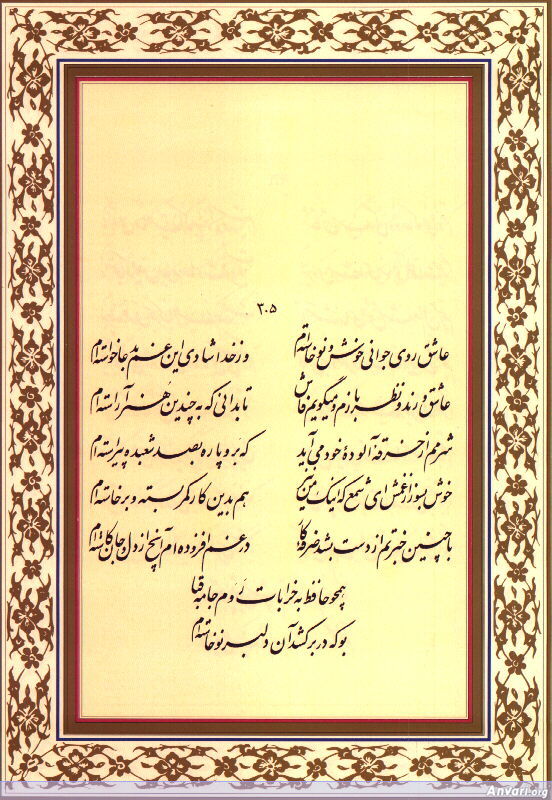 ۳۰۵
عاشق روی جوانی خوش نوخاسته‌ام وز خدا شادی این غم بدعا خواسته‌ام
عاشق و رند و نظربازم و میگویم فاش تا بدانی که به چندین هنر آراسته‌ام
شرمم از خرقه آلوده خود می‌آید که برو پاره بصد شعبده پیراسته‌ام
خوش بسوز از غمش ای شمع که اینک من نیز هم بدین کار کمر بسته و برخاسته‌ام
با چنین حیرتم از دست بشد صرفه کار در غم افزوده‌ام آنچ از دل و جان کاسته‌ام
همچو حافظ به خرابات روم جامه قبا
بو که در بر کشد آن دلبر نوخاسته‌ام
Anvari.org